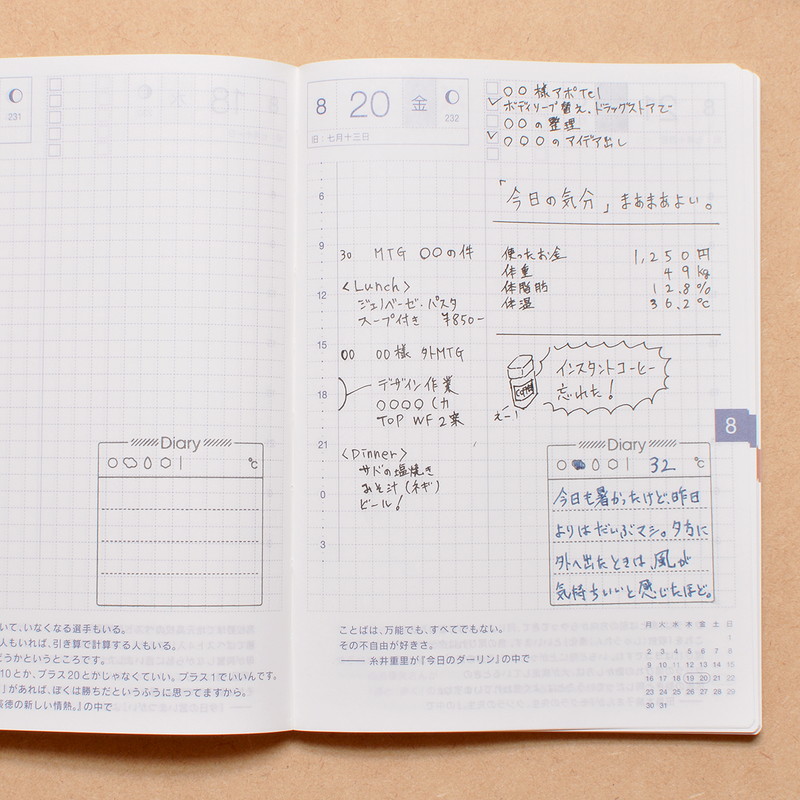 231
いて、いなくなる選手もいる。
人もいれば、引き算で計算する人もいる。
どうかというところです。
10とか、プラス20とかじゃなくていい。プラス1でいいんです。
」があれば、ぼくは勝ちだというふうに思ってますから。
の新しい情熱。』の中で
Diary
℃
8 20 金
232
旧：七月十三日
6
9
12
15
18
21
0
3
〇〇様アポTel
ボディソープ替え、ドラッグストアで
〇〇の整理
〇〇〇のアイデア出し
「今日の気分」まあまあよい。
使ったお金 1,250円
体重 49kg
体脂肪 12.8%
体温 36.2℃
30 MTG 〇〇の件
<Lunch>
ジェノベーゼ・パスタ
スープ付き ¥850-
00 〇〇様 外MTG
デザイン作業
〇〇〇〇
TOP WF 2案
<Dinner>
サバの塩焼き
みそ汁(ネギ)
ビール!
インスタントコーヒー
忘れた!
えー!
8
Diary
32 ℃
今日も暑かったけど、昨日
よりはだいぶマシ。夕方に
外へ出たときは、風が
気持ちいいと感じたほど。
ことばは、万能でも、すべてでもない。
その不自由が好きさ。
―― 糸井重里が『今日のダーリン』の中で
月 火 水 木 金 土 日
1
2 3 4 5 6 7 8
9 10 11 12 13 14 15
16 17 18 19 20 21 22
23 24 25 26 27 28 29
30 31